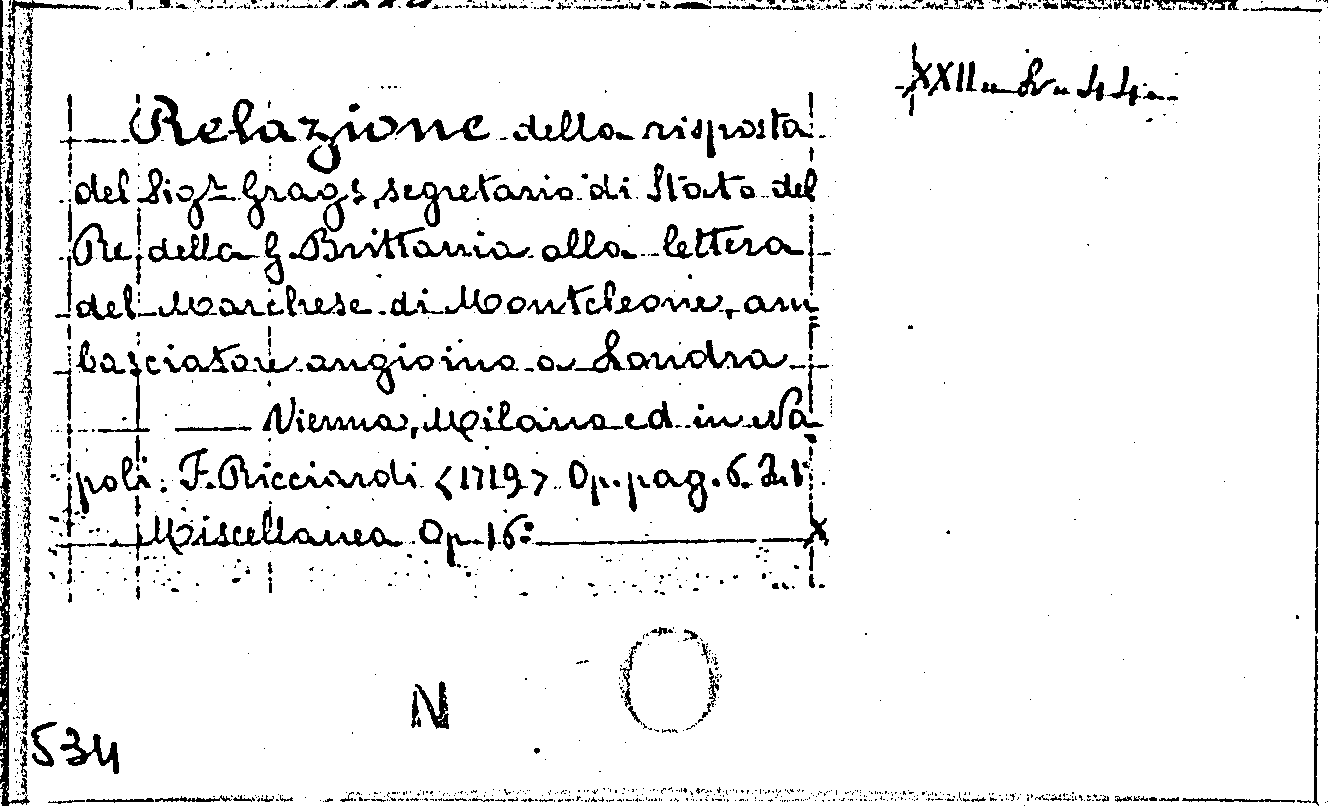 XXII
Relazione della risposta
del Sigr Grags, segretario di Stato del
Re della G. Brittania alla lettera
del Marchese di Monteleone, am
basciatore angioino a Londra
Vienna, Milano ed in Na
poli. F. Ricciardi <1719> Op. pag. 6.
Miscellanea Op. 16:
N
534